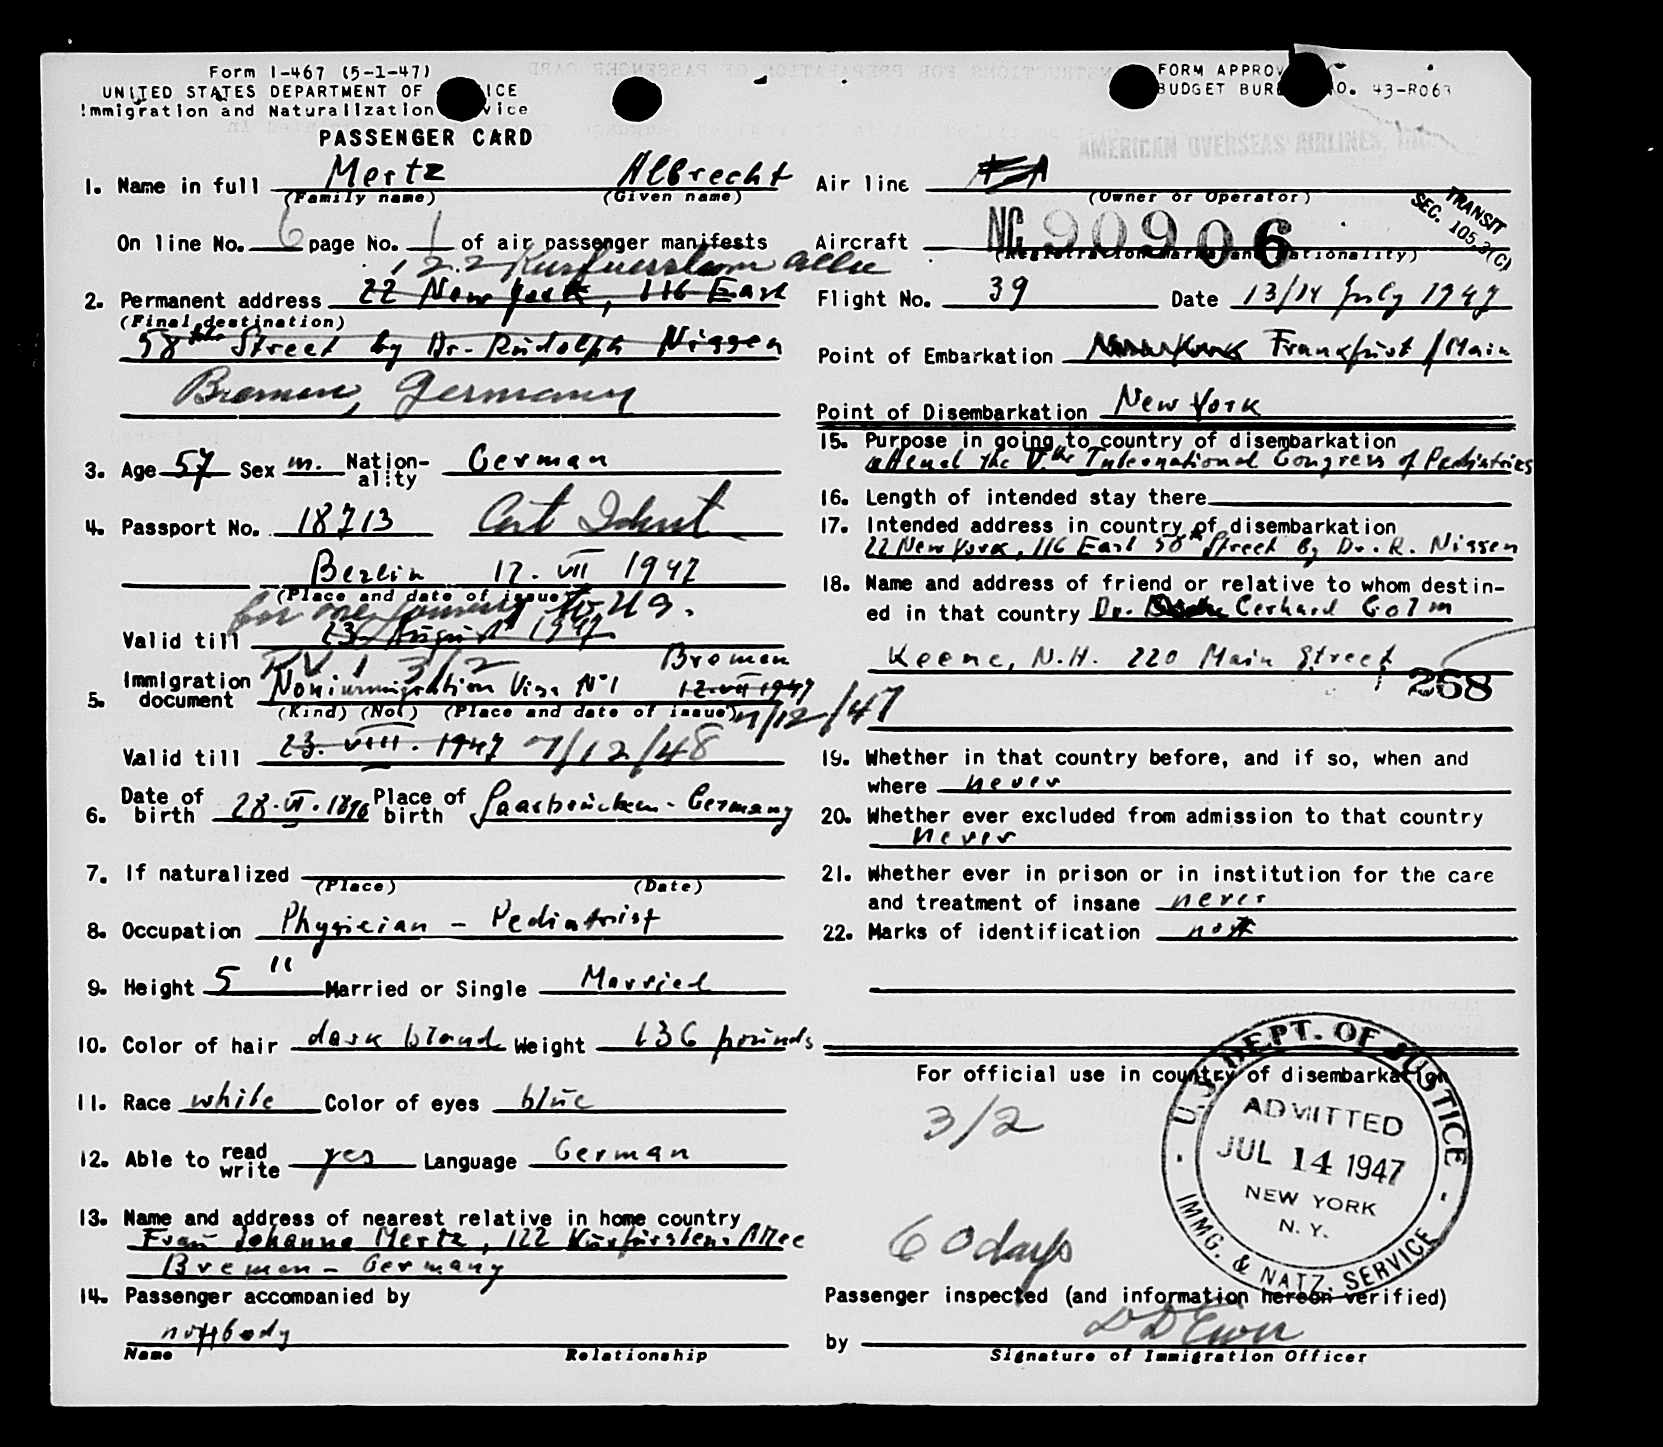 Form I-467 (5-1-47)
UNITED STATES DEPARTMENT OF ICE
Immigration and Naturalization vice
PASSENGER CARD
FORM APPROV
BUDGET BURE O. 43-R063
AMERICAN OVERSEAS AIRLINES, INC.
1. Name in full Mertz Albrecht
(Family name) (Given name)
On line No. 6 page No. 1 of air passenger manifests
122 Kurfuerstenallee
2. Permanent address 22 New York, 116 East
(Final destination)
58th Street by Dr. Rudolph Nissen
Bremen, Germany
3. Age 57 Sex m. Nation-ality German
4. Passport No. 18713 Cert Ident
Berlin 12. VII 1947
(Place and date of issue)
for one journey to US.
Valid till 23. August 1947
RV 1 3/2 Bremen
5. Immigration document Nonimmigration Visa No 1 12 VII 1947
(Kind) (No.) (Place and date of issue) 7/12/47
Valid till 23. VIII. 1947 7/12/48
6. Date of birth 28. VI. 1890 Place of birth Saarbrücken - Germany
7. If naturalized
(Place) (Date)
8. Occupation Physician - Pediatrist
9. Height 5 " Married or Single Married
10. Color of hair dark blond Weight 136 pounds
11. Race white Color of eyes blue
12. Able to read write yes Language German
13. Name and address of nearest relative in home country
Frau Johanna Mertz, 122 Kürfürsten-Allee
Bremen - Germany
14. Passenger accompanied by
nobody
Name Relationship
Air line AOA
(Owner or Operator)
TRANSIT
SEC. 105.3(C)
Aircraft NC 90906
(Registration marks and nationality)
Flight No. 39 Date 13/14 July 1947
Point of Embarkation Frankfurt/Main
Point of Disembarkation New York
15. Purpose in going to country of disembarkation
attend the V.the International Congress of Pediatrics
16. Length of intended stay there
17. Intended address in country of disembarkation
22 New York, 116 East 58th Street by Dr. R. Nissen
18. Name and address of friend or relative to whom destin-
ed in that country Dr. Gerhard Golm
Keene, N.H. 220 Main Street
268
19. Whether in that country before, and if so, when and
where never
20. Whether ever excluded from admission to that country
never
21. Whether ever in prison or in institution for the care
and treatment of insane never
22. Marks of identification not
For official use in country of disembarkation
3/2
60 days
U.S. DEPT. OF JUSTICE
ADMITTED
JUL 14 1947
NEW YORK
N. Y.
IMMG. & NATZ. SERVICE
Passenger inspected (and information hereon verified)
by
Signature of Immigration Officer